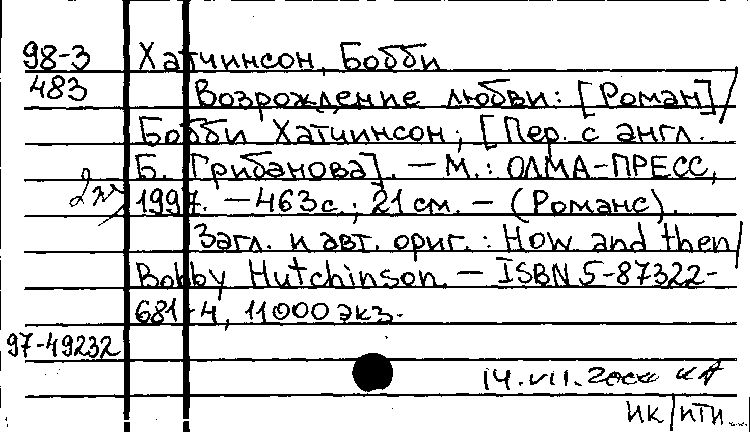 98-3 Хатчинсон, Бобби
483 Возрождение любви: [Роман] /
Бобби Хатчинсон; [Пер. с англ.
Б. Грибанова]. — М.: ОЛМА-ПРЕСС,
1997. — 463 с.; 21 см. — (Романс).
Загл. и авт. ориг.: How and then /
Bobby Hutchinson. — ISBN 5-87322-
681-4, 11000 экз.
97-49232
14.VII.2000
ИК/